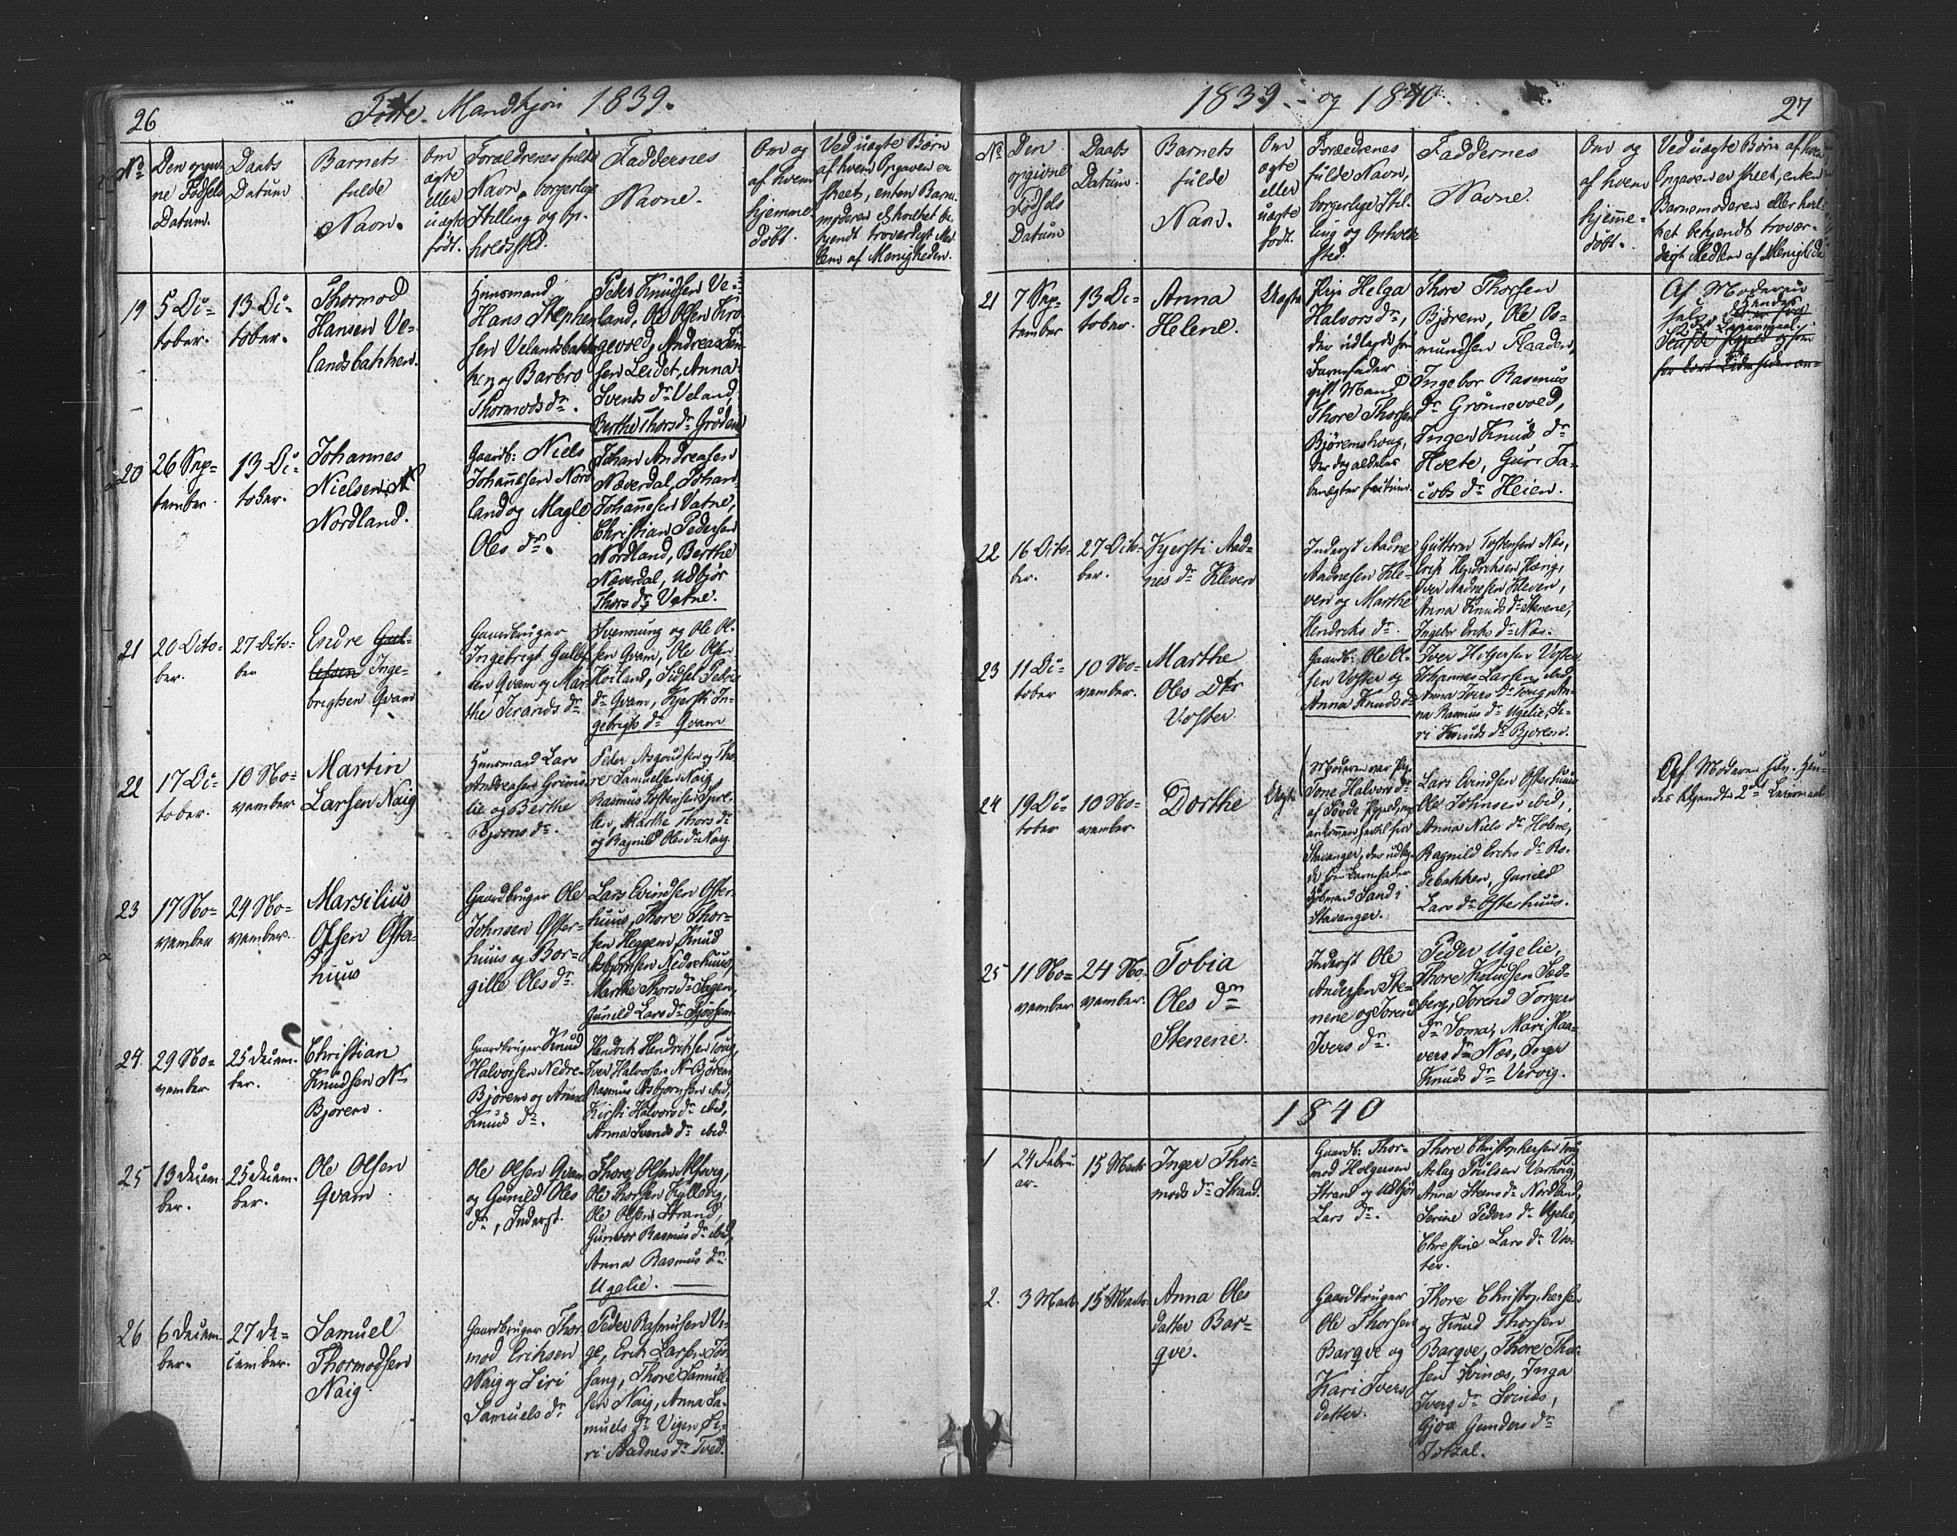 26
Fødte Mandkjøn 1839.
No
Den opgivne Fødsels Datum.
Daabs Datum
Barnets fulde Navn.
Om ægte eller uægte født.
Forældrenes fulde Navn, borgerlige Stilling og Opholdssted.
Faddernes Navne.
Om og af hvem hjemme døbt.
Ved uægte Børn af hvem Opgaven er skeet, enten Barnemoderen eller hvilket bekjendt troværdigt Medlem af Menigheden.
19
5 October.
13 October.
Thormod
Hansen Ve-
landsbakken.
Huusmand
Hans Stephen-
sen Velandsbak-
ken og Barbro
Thormods dr.
Peder Knudsen Ve-
land, Ole Olsen
Andreas
sen Leidet, Anna
Svends dr Veland,
Berthe Thors dr Gröden
20
26 Sep-
tember.
13 Oc-
tober.
Johannes
Nielsen
Nordland.
Gaardb: Niels
Johannesen Nord
land og Magle
Oles dr.
Johan Andreasen
Næverdal, Johan
Johannesen Vatne,
Christian Pedersen
Nordland, Berthe
Næverdal, Udbjør
Thors dr Vatne.
21
20 Octo-
ber.
27 Octo-
ber
Endre Gul-
lesen Inge-
brigtsen Qvam
Gaardbruger
Ingebrigt Gulles
sen Qvam og Mar-
the Serands dr
Svennung og Ole Ol-
sen Qvam, Ole Olsen
Hoiland, Sidsel Peders
dr Qvam, Kjersti In-
gebrigts dr Qvam
22
17 Oc-
tober.
10 No-
vember
Martin
Larsen Naig
Huusmand Lars
Andreasen
lie og Berthe
Bjørns dr.
Peder og Tho-
re Samuelsen Naig
Rasmus Tostensen
Marthe Thors dr
og Ragnild Oles dr Naig
23
17 No-
vember
24 No-
vember.
Marsilius
Olsen Oster-
huus
Gaardbruger Ole
Johnsen Oster-
huus og Bor-
gille Oles dr.
Lars Evindsen Oster-
huus, Thore Thor-
sen Heggem, Knud
Asbjørnsen Nedrehuus,
Marthe Thors dr Hagen,
Gunild Lars dr
24.
29 No-
vember
25 Decem-
ber.
Christian
Knudsen N
Bjørem.
Gaardbruger Knud
Halvorsen Nedre-
Bjørem og Anna
Knuds dr.
Hendrik Hendriksen Toug,
Iver Halvorsen N Bjørem
Rasmus Asbjørnsen ibid,
Kirsti Halvors dr ibid,
Anna Svends dr ibid.
25
13 Decem-
ber.
25 Decem-
ber.
Ole Olsen
Qvam
Ole Olsen Qvam
og Gunild Oles
dr, Inderst.
Thore Olsen
Ole Thorsen
Ole Olsen Strand,
Gunvor Rasmus dr ibid,
Anna Rasmus dr
Ugelie.
26
6 Decem-
ber.
27 De-
cember.
Samuel
Thormodsen
Naig
Gaardbruger Thor-
mod Eriksen
Naig og Siri
Samuels dr
Peder Rasmusen Vi-
ge, Erik Larsen
Thore Samuel-
sen Naig, Anna Sa-
muels dr Vigen, Si-
ri Aadnes dr Tved.
1839 - og 1840.
27
No
Den opgivne Fødsels Datum
Daabs Datum.
Barnets fulde Navn.
Om ægte eller uægte født.
Forældrenes fulde Navn, borgerlige Stilling og Opholdssted.
Faddernes Navne.
Om og af hvem hjemmedøbt.
Ved uægte Børn af hvem Opgaven er skeet, enten Barnemoderen eller hvilket bekjendt troværdigt Medlem af Menighed
21
7 Sep-
tember
13 Oc-
tober.
Anna
Helene.
Uægte
Pige Helga
Halvors dr,
der udlagde som
Barnefader
gift Mand
Thore Thorsen
Bjøremshoug,
der dog aldeles
benægter
Thore Thorsen
Bjørem, Ole Os-
mundsen
Ingebor Rasmus
dr Grønnevold,
Inger Knuds dr
Hoete, Guri Ja-
cobs dr Heien.
Af Moderen
selv,
22
16 Octo-
ber.
27 Octo-
ber.
Kjersti Aad-
nes dr Kleven
Inderst Aadne
Aadnesen Kle-
ven og Marthe
Hendriks dr.
Guttorm Tostensen Næs,
Erik Hendriksen
Iver Aadnesen Kleven,
Anna Knuds dr Stenene,
Ingebr Eriks dr Næs.
23
11 Oc-
tober
10 No-
vember.
Marthe
Oles Dtr
Voster
Gaardb: Ole Ol-
sen Voster og
Anna Knuds dr
Iver Holgersen Voster
Johannes Larsen ibid,
Anna Ivers dr Toug, An-
na Rasmus dr Ugelie, Si-
ri Knuds dr Bjørem.
24
19 Oc-
tober
10 No-
vember.
Dorthe
Uægte
Moderen var Pig.
Tone Halvors dr
af
ankommen hertil fra
Stavanger, der udlag-
de som Barnefader
Sand i
Stavanger.
Lars Evindsen Osterhuus
Ole Johnsen ibid,
Anna Niels dr Holene,
Ragnild Eriks dr Ro-
debakken, Gunild
Lars dr Osterhuus.
Af Moderen selv. Hen-
des 2det Leiermaal
25
11 No-
vember
24 No-
vember.
Tobia
Oles dr
Stenene.
Inderst Ole
Andersen Ste-
nene og Serena
Ivers dr.
Peder Ugelie,
Thore Knudsen Sed-
berg, Torger
dr Soma, Mari Haa-
vers dr Næs, Inger
Knuds dr Vervig.
1840
1
24 Febru-
ar.
15 Marts
Inger Thor-
mods dr Strand.
Gaardb: Thor-
mod Holgersen
Strand og Udbjør
Lars dr.
Thore Christophersen Toug
Aslag Poulsen
Anna Steens dr Nordland,
Serine Peders dr Ugelie,
Christine Lars dr Vos-
ter.
2.
3 Marts
15 Marts
Anna Oles
datter Bar-
qve.
Gaardbruger
Ole Thorsen
Barqve og
Kari Ivers
datter.
Thore Christophersen
og Knud Thorsen
Barqve, Thore Thor-
sen Svinæs, Inga
Ivers dr Svinæs,
Gjoa Gunders dr